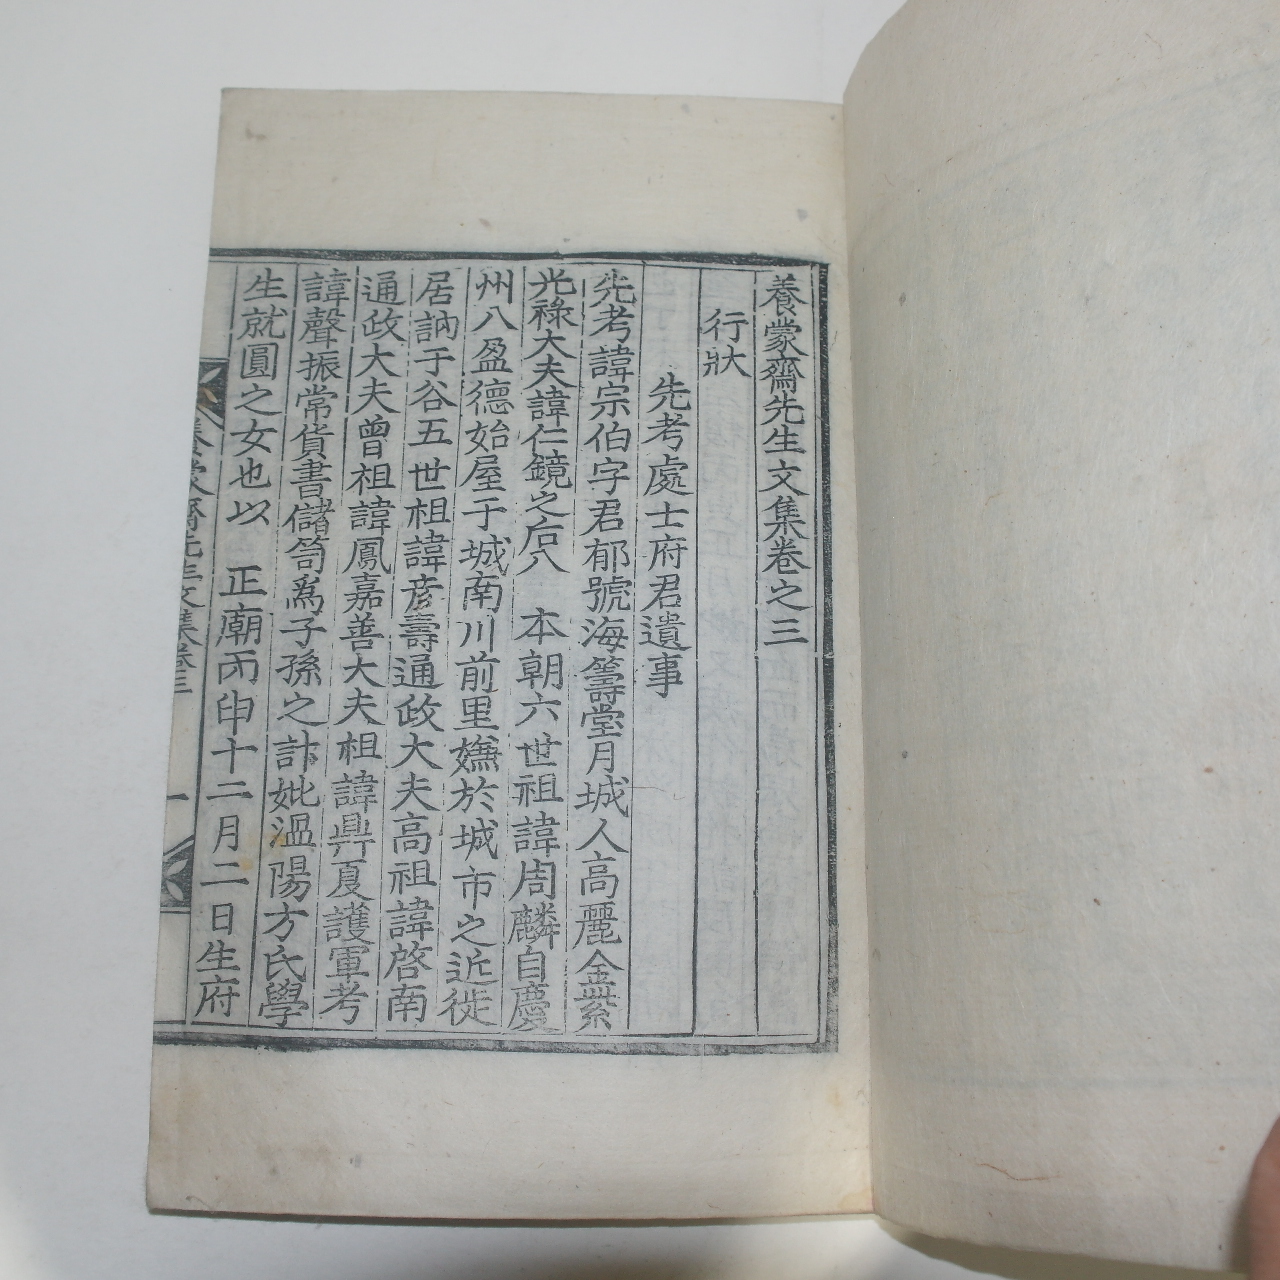 養蒙齋先生文集卷之三
行狀
先考處士府君遺事
先考諱宗伯字君郁號海籌堂月城人高麗金紫
光祿大夫諱仁鏡之后入 本朝六世祖諱周麟自慶
州入盈德始屋于城南川前里嫌於城市之近徙
居訥于谷五世祖諱彦壽通政大夫高祖諱啓南
通政大夫曾祖諱鳳嘉善大夫祖諱鼎夏護軍考
諱聲振常貨書儲笥爲子孫之計妣溫陽方氏學
生就圓之女也以 正廟丙申十二月二日生府
養蒙齋先生文集卷三 一